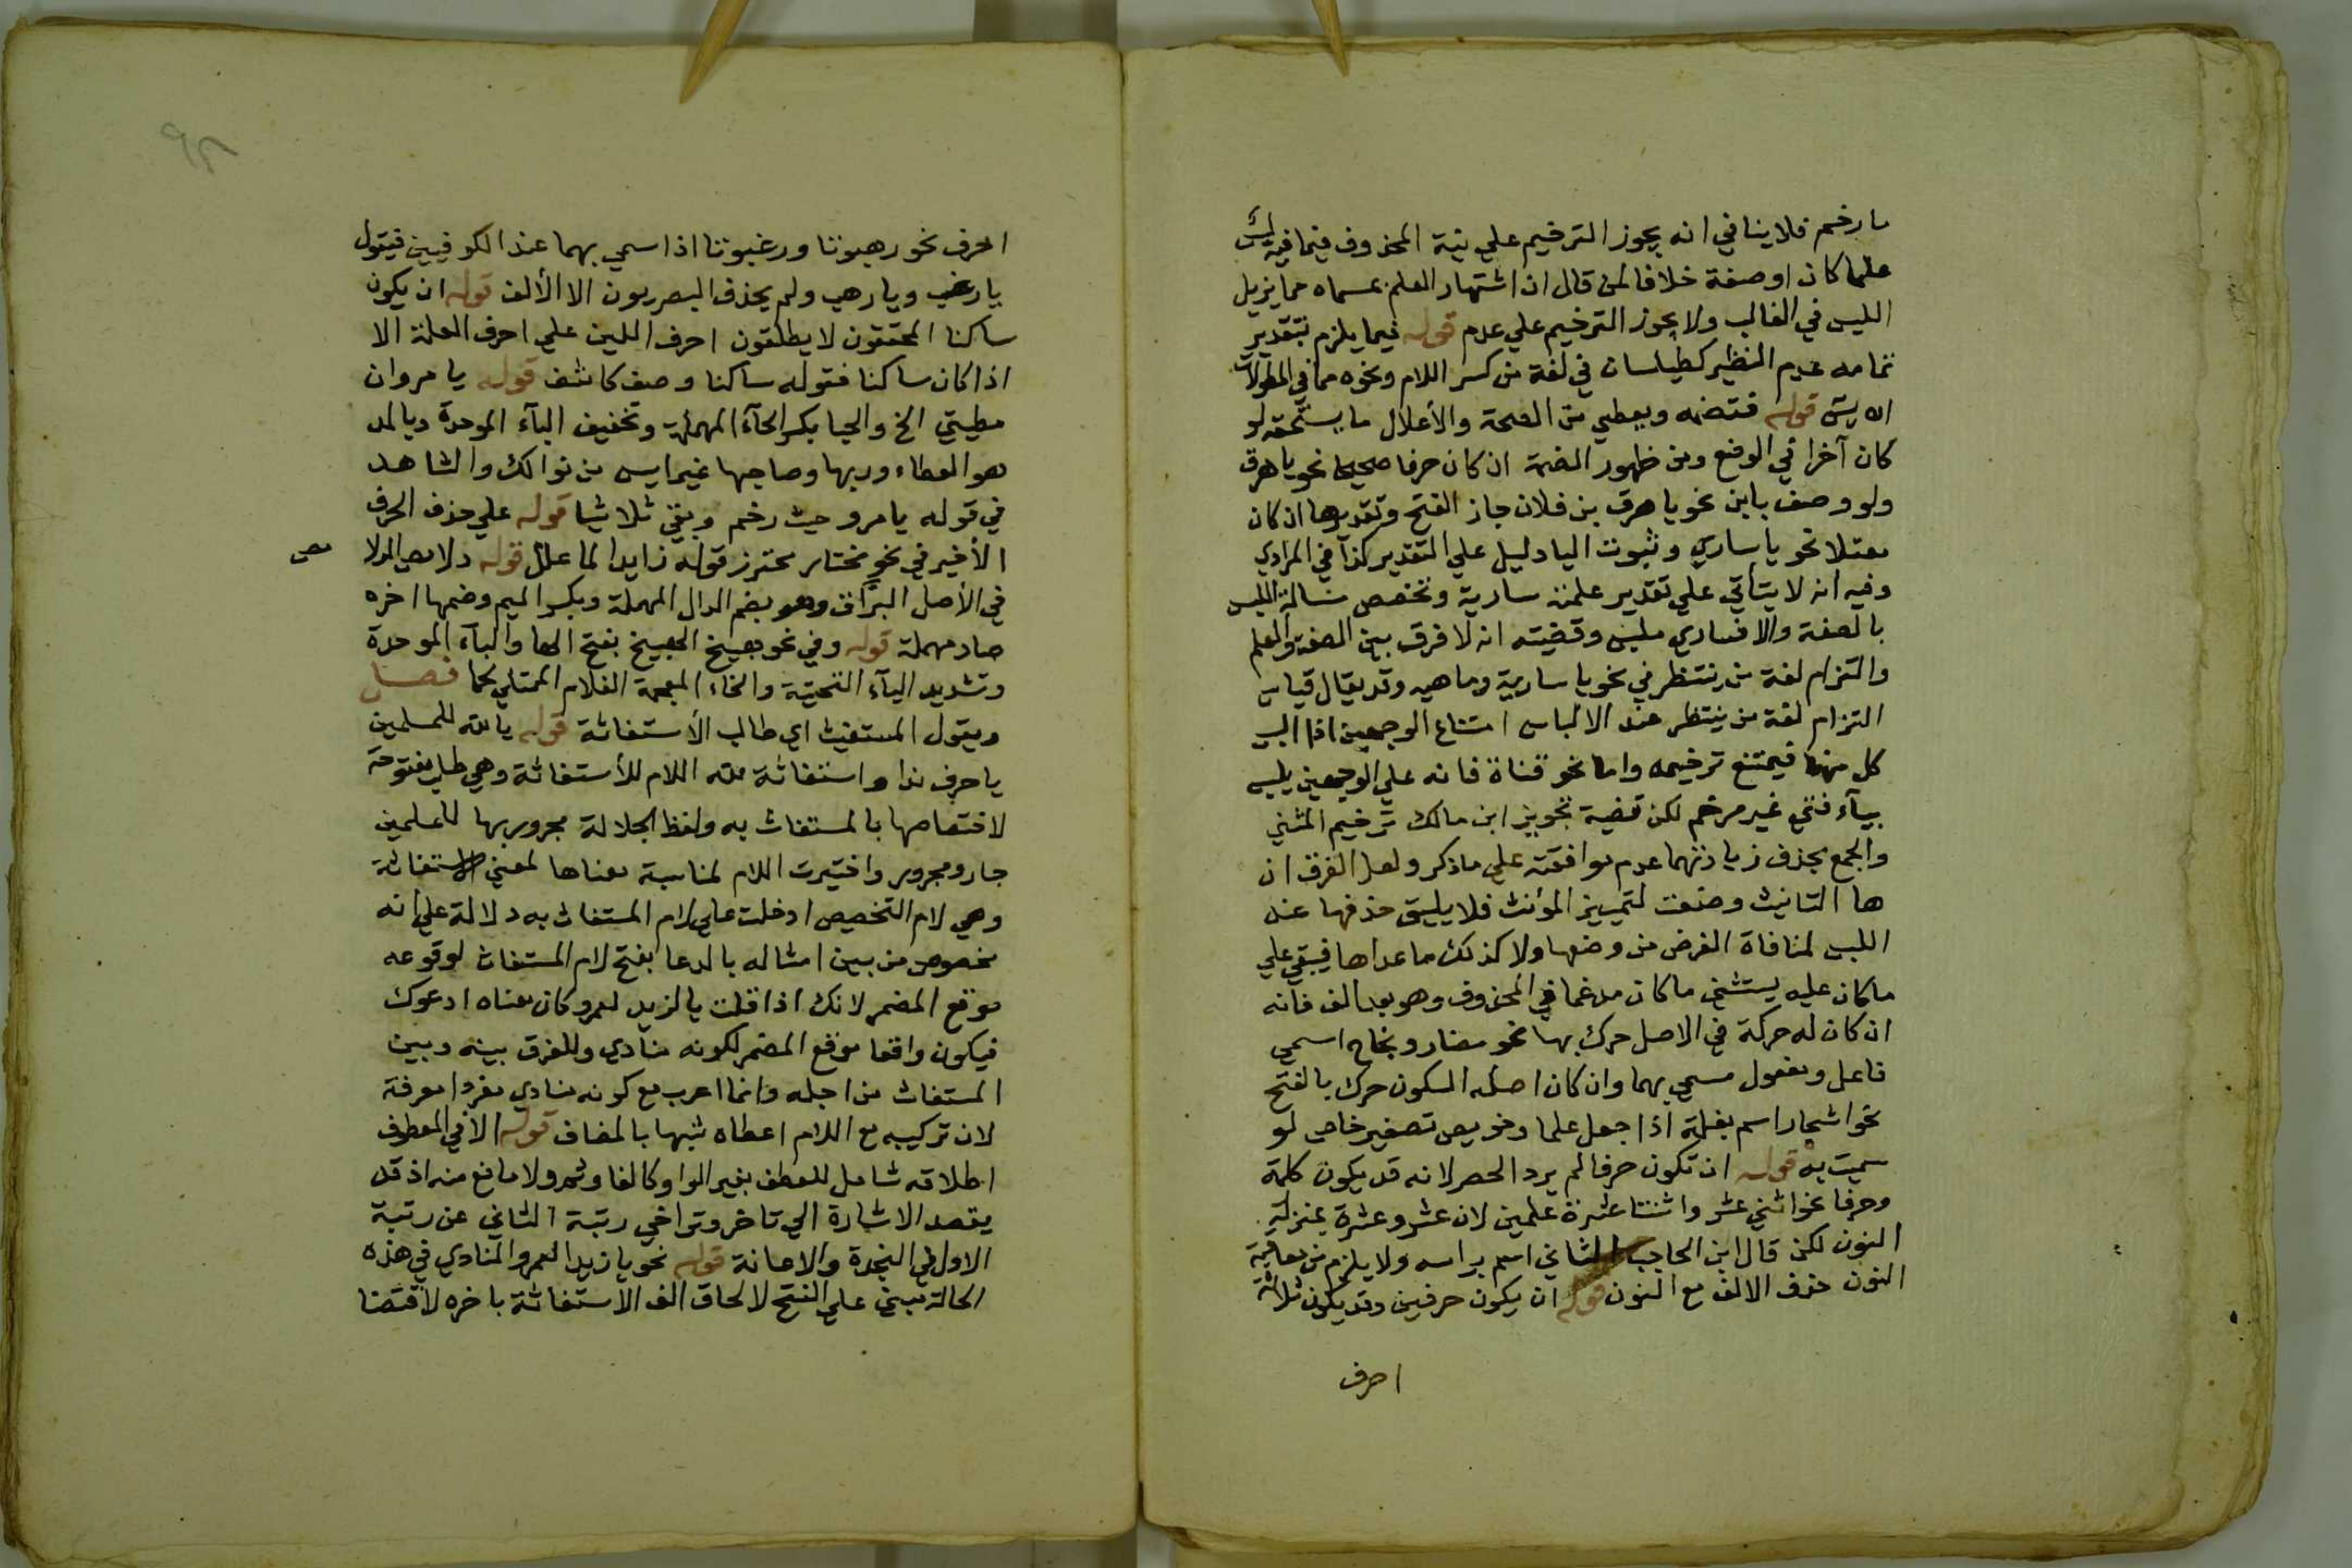 ما رخم فلا ينافي انه يجوز الترخيم علي نية المحذوف فيما فيه لبس
علما كان او صفة خلافا لمن قال ان اشتهار العلم بمسماه مما يزيل
اللبس في الغالب ولا يجوز الترخيم علي عدم قوله فيما يلزم بتقدير
تمامه عدم النظير كطيلسان في لغة من كسر اللام ونحوه مما في المطولات
قوله فتضمه ويعطي من الصحة والأعلال ما يستحقه لو
كان آخرا في الوضع ومن ظهور الضمة ان كان حرفا صحيحا نحو يا هرق
ولو وصف بابن نحو يا هرق بن فلان جاز الفتح وتقديرها ان كان
معتلا نحو يا ساري وثبوت اليا دليل علي التقدير كذا في المرادي
وفيه انه لا يتأتي علي تقدير علمنه سارية وتخصص مسالة اللبس
بالصفة والا فساري ملبس وقضيته انه لا فرق بين الصفة والعلم
والتزام لغة من ينتظر في نحو يا سارية وما هيه وقد يقال قياس
التزام لغة من ينتظر عند الالباس امتناع الوجهين اذا البس
كل منهما فيمتنع ترخيمه واما نحو قناة فانه علي الوجهين يلبس
بيآء فتي غير مرخم لكن قضية تجويز ابن مالك ترخيم المثني
والجمع بحذف زيادتهما عدم موافقته علي ما ذكر ولعل الفرق ان
ها التانيث وضعت لتمييز المؤنث فلا يليق حذفها عند
اللبس لمنافاة الغرض من وضعها ولا كذلك ما عداها فيبقي علي
ما كان عليه يستثني ما كان مدغما في المحذوف وهو بعد الف فانه
ان كان له حركة في الاصل حرك بها نحو مضار وبحاج اسمي
فاعل ومفعول مسمي بهما وان كان اصله السكون حرك بالفتح
نحو اسحار اسم بقلة اذا جعل علما وخويص تصغير خاص لو
سميت به قوله ان تكون حرفا لم يرد الحصر لانه قد يكون كلمة
وحرفا نحو اثني عشر واثنتا عشرة علمين لان عشر وعشرة بمنزلة
النون لكن قال ابن الحاجب الثاني اسم براسه ولا يلزم من معاقبة
النون حذف الالف مع النون قوله ان يكون حرفين وقد يكون ثلاثة
احرف
احرف نحو رهبوتا ورغبوتا اذا سمي بهما عند الكوفيين فيتول
يا رغب ويا رهب ولم يحذف البصريون الا الألف قوله ان يكون
ساكنا المحققون لا يطلقون احرف اللين علي احرف العلة الا
اذا كان ساكنا فتوله ساكنا وصف كاشف قوله يا مروان
مطيتي الخ والحيا بكسر الحآء المهملة وتخفيف البآء الموحدة وبالمد
هو العطاء وربها وصاحبها غير ايس من نوالك والشاهد
في قوله يا مرو حيث رخم وبقي ثلاثيا قوله علي حذف الحرف
الأخير في نحو مختار محترز قوله زايدا لما علل قوله دلامص الدلا
مص
في الأصل البرّاق وهو بضم الدال المهملة وبكسر الميم وضمها اخره
صاد مهملة قوله وفي نحو هبيخ الهبيخ بفتح الها والبآء الموحدة
وتشديد اليآء التحتية والخاء المعجمة الغلام الممتلي لحما فصل
ويقول المستغيث اي طالب الأستغاثة قوله يا لله للمسلمين
يا حرف ندا واستغاثة لله اللام للأستغاثة وهي طلب مفتوحة
لاختصاصها بالمستغاث به ولفظ الجلالة مجرور بها للمسلمين
جار ومجرور واختيرت اللام لمناسبة معناها لمعني الاستغاثة
وهي لام التخصيص ادخلت علي لام المستغاث به دلالة علي انه
مخصوص من بين امثاله بالدعا بفتح لام المستغاث لوقوعه
موقع المضمر لانك اذا قلت يا لزيد لعمرو كان معناه ادعوك
فيكون واقعا موقع المضمر لكونه منادي وللفرق بينه وبين
المستغاث من اجله وانما اعرب مع كونه منادي مفردا معرفة
لان تركيبه مع اللام اعطاه شبها بالمضاف قوله الا في المعطوف
اطلاقه شامل للعطف بغير الواو كالفا وثم ولا مانع منه اذ قد
يقصد الاشارة الي تاخر وتراخي رتبة الثاني عن رتبة
الاول في النجدة والاعانة قوله نحو يا زيدا لعمرو المنادي في هذه
الحالة مبني علي الفتح لالحاق الف الاستغاثة باخره لاقتضا